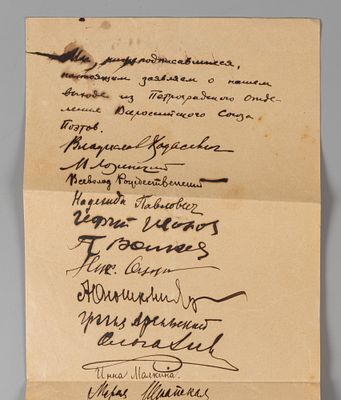 Мы, нижеподписавшиеся,
настоящим заявляем о нашем
выходе из Петроградского Отде-
ления Всероссийского Союза
Поэтов.
Владислав Ходасевич
М Лозинский
Всеволод Рождественский
Надежда Павлович
Георгий Иванов
П Волков
Ник. Оцуп
Грааль Арельский
Инна Малкина.
Мария Шкапская